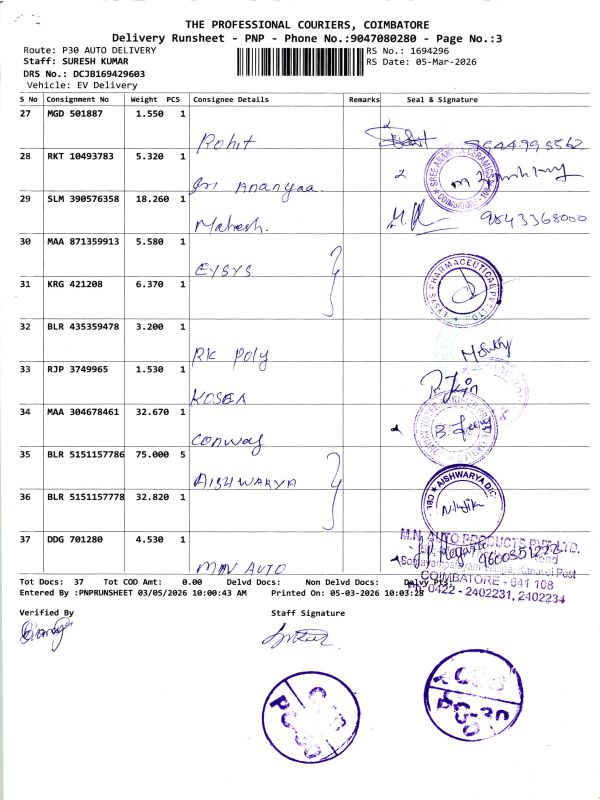 THE PROFESSIONAL COURIERS, COIMBATORE
Delivery Runsheet - PNP - Phone No.:9047080280 - Page No.:3
Route: P30 AUTO DELIVERY
RS No.: 1694296
Staff: SURESH KUMAR
RS Date: 05-Mar-2026
DRS No.: DCJB169429603
Vehicle: EV Delivery
S No Consignment No Weight PCS Consignee Details Remarks Seal & Signature
27 MGD 501887 1.550 1
Rohit
28 RKT 10493783 5.320 1
Sri Ananyaa.
29 SLM 390576358 18.260 1
Mahesh. 9843368000
30 MAA 871359913 5.580 1
EYSYS
31 KRG 421208 6.370 1
EYSYS PHARMACEUTICAL PVT LTD
32 BLR 435359478 3.200 1
RK Poly
33 RJP 3749965 1.530 1
KOSEA
34 MAA 304678461 32.670 1
Conway
35 BLR 5151157786 75.000 5
AISHWARYA
AISHWARYA DIC
CBE
36 BLR 5151157778 32.820 1
37 DDG 701280 4.530 1
MNN AUTO
M.N. AUTO PRODUCTS PVT. LTD.
9600851222
COIMBATORE - 641 108
0422 - 2402231, 2402234
Tot Docs: 37 Tot COD Amt: 0.00 Delvd Docs: Non Delvd Docs: Delvy Pts:
Entered By :PNPRUNSHEET 03/05/2026 10:00:43 AM Printed On: 05-03-2026 10:03:28
Verified By
Staff Signature